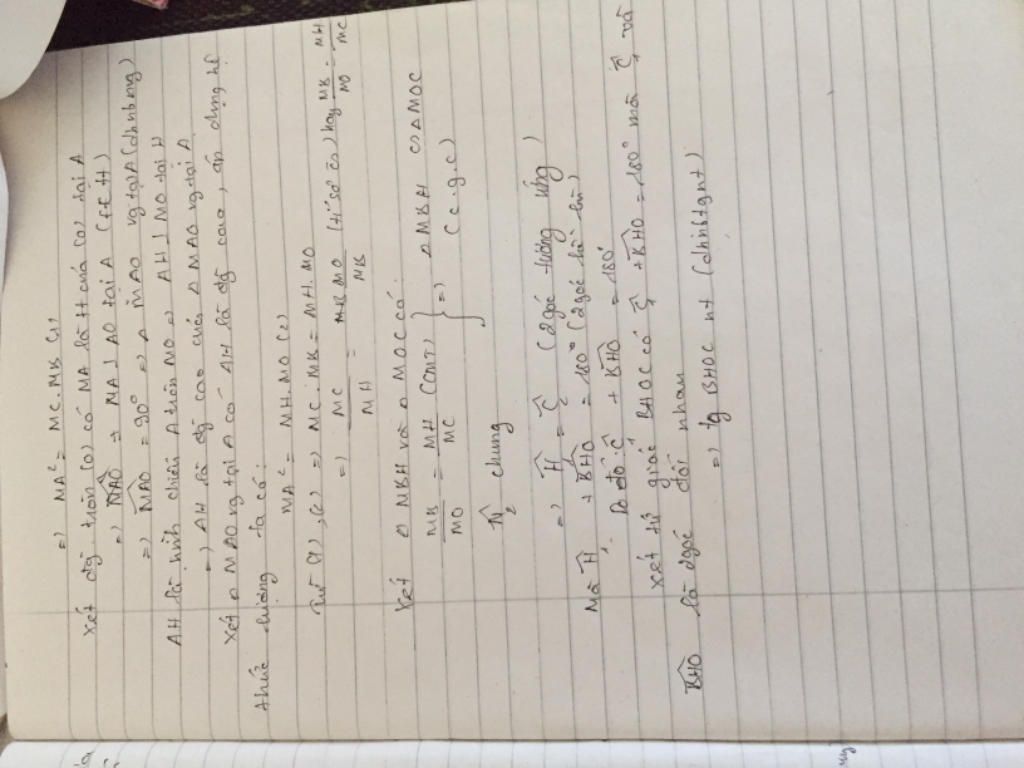 => MA² = MC.MB (1)
Xét đg tròn (O) có MA là tt của (O) tại A
=> MA ⊥ AO tại A (t/c tt)
=> MAO = 90° => Δ MAO vg tại A (dhnb Δvg)
AH là hình chiếu A trên MO => AH ⊥ MO tại H
=> AH là đg cao của Δ MAO vg tại A
Xét Δ MAO vg tại A có AH là đg cao, áp dụng hệ
thức lượng ta có:
MA² = MH.MO (2)
Từ (1), (2) => MC.MB = MH.MO
=> MC/MH = MO/MB (tỉ số ...) hay MB/MO = MH/MC
Xét Δ MBH và Δ MOC có:
MB/MO = MH/MC (CMT) } => Δ MBH ∽ Δ MOC
M̂₂ chung (c.g.c)
=> Ĥ₁ = Ĉ₁ (2 góc tương ứng)
Mà Ĥ₁ + BHO = 180° (2 góc kề bù)
Do đó Ĉ₁ + BHO = 180°
xét tứ giác BHOC có Ĉ₁ + BHO = 180° mà Ĉ₁ và
BHO là 2 góc đối nhau
=> tg BHOC nt (dhnbtgnt)